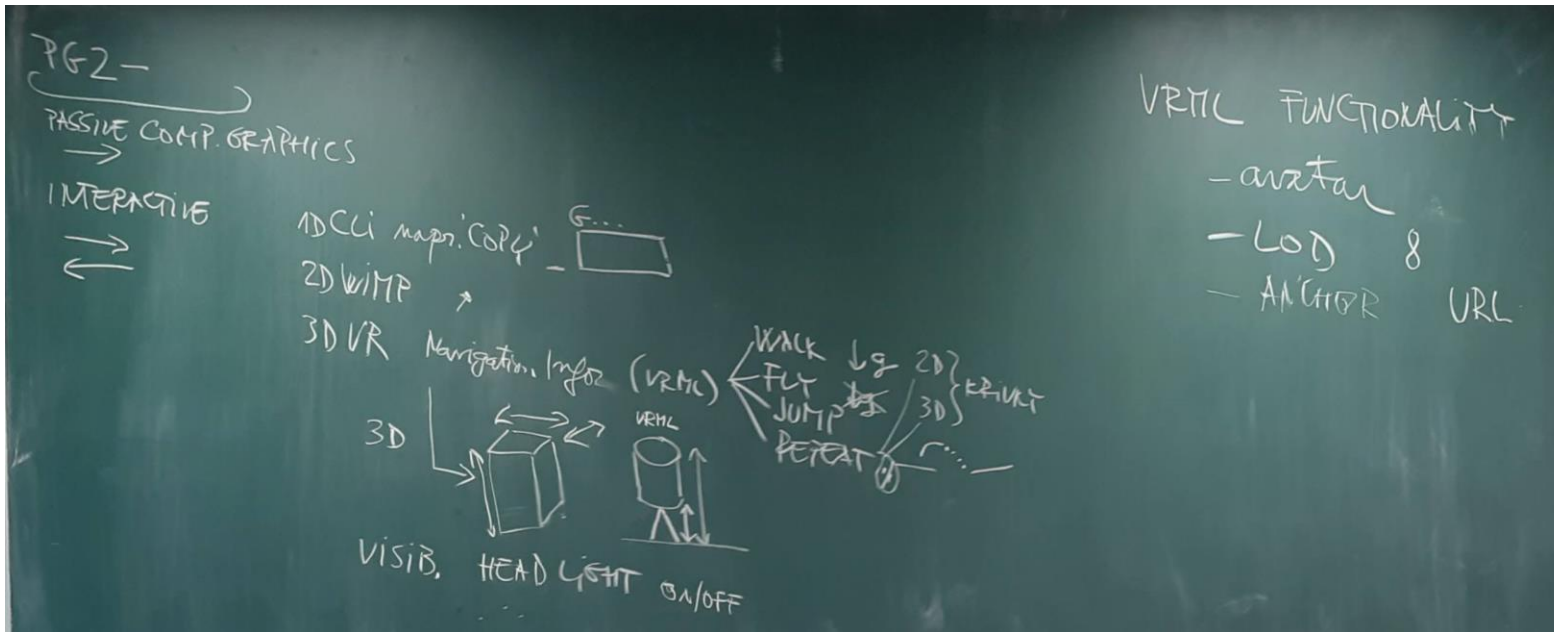 PG2 -
PASSIVE COMP. GRAPHICS
INTERACTIVE
1D CLI napr. 'COPY' _ G...
2D WIMP
3D VR Navigation Info (VRML)
WALK g 2D
FLY
JUMP 3D
REPEAT
KRIVKY
3D
VRML
VISIB. HEADLIGHT ON/OFF
VRML FUNCTIONALITY
- avatar
- LOD 8
- ANCHOR URL